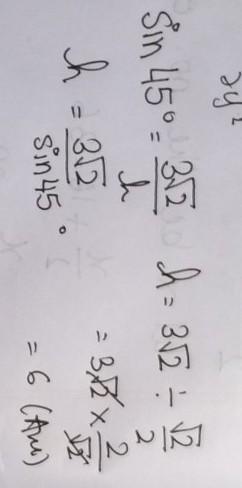 2y²
Sin 45° = 3√2/h
h = 3√2/sin45°
h = 3√2 ÷ √2/2
= 3√2 × 2/√2
= 6 (Ans)